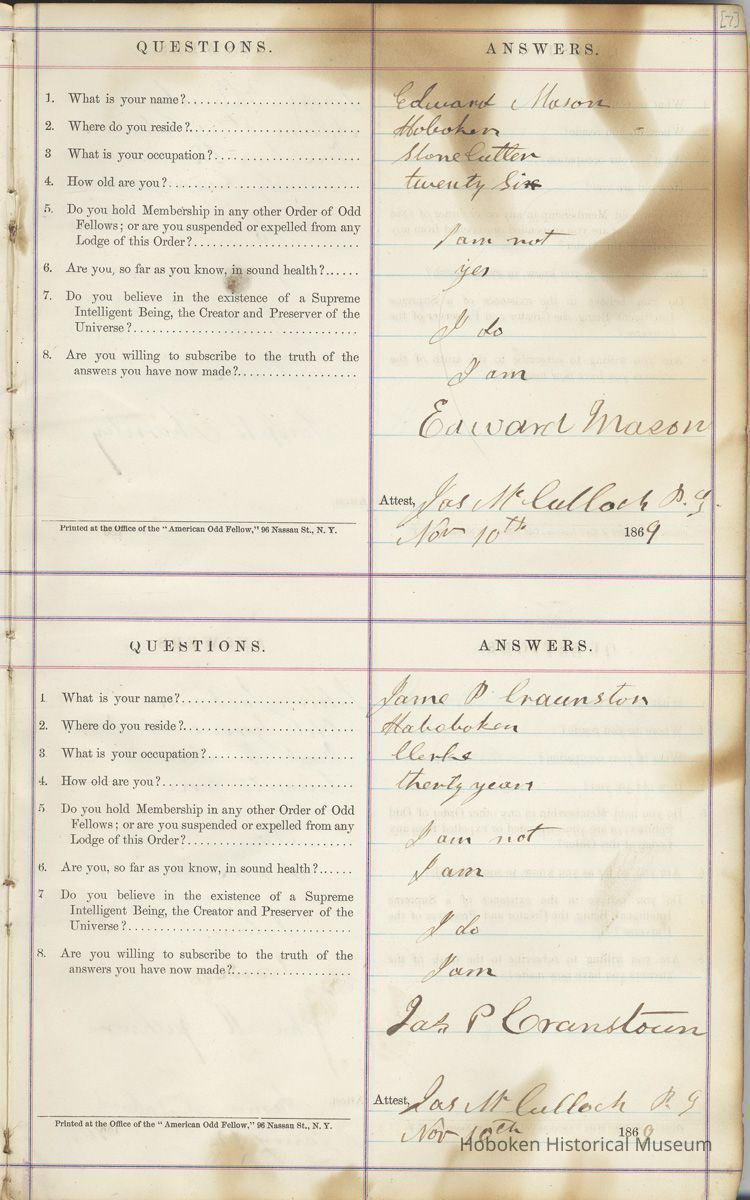 [7]
QUESTIONS. ANSWERS.
1. What is your name? Edward Mason
2. Where do you reside? Hoboken
3 What is your occupation? Stone Cutter
4. How old are you? twenty Six
5. Do you hold Membership in any other Order of Odd
Fellows; or are you suspended or expelled from any
Lodge of this Order? I am not
6. Are you, so far as you know, in sound health? yes
7. Do you believe in the existence of a Supreme
Intelligent Being, the Creator and Preserver of the
Universe? I do
8. Are you willing to subscribe to the truth of the
answers you have now made? I am
Edward Mason
Attest, Jas McCulloch P. G.
Printed at the Office of the "American Odd Fellow," 96 Nassau St., N. Y.
Nov 10th 1869
QUESTIONS. ANSWERS.
1 What is your name? Jame P Craunston
2. Where do you reside? Haboboken
3 What is your occupation? Clerke
4. How old are you? therty years
5 Do you hold Membership in any other Order of Odd
Fellows; or are you suspended or expelled from any
Lodge of this Order? I am not
6. Are you, so far as you know, in sound health? I am
7 Do you believe in the existence of a Supreme
Intelligent Being, the Creator and Preserver of the
Universe? I do
8. Are you willing to subscribe to the truth of the
answers you have now made? I am
Jas P Cranstoun
Attest, Jas McCulloch P. G
Printed at the Office of the "American Odd Fellow," 96 Nassau St., N. Y.
Nov 10th 1869
Hoboken Historical Museum